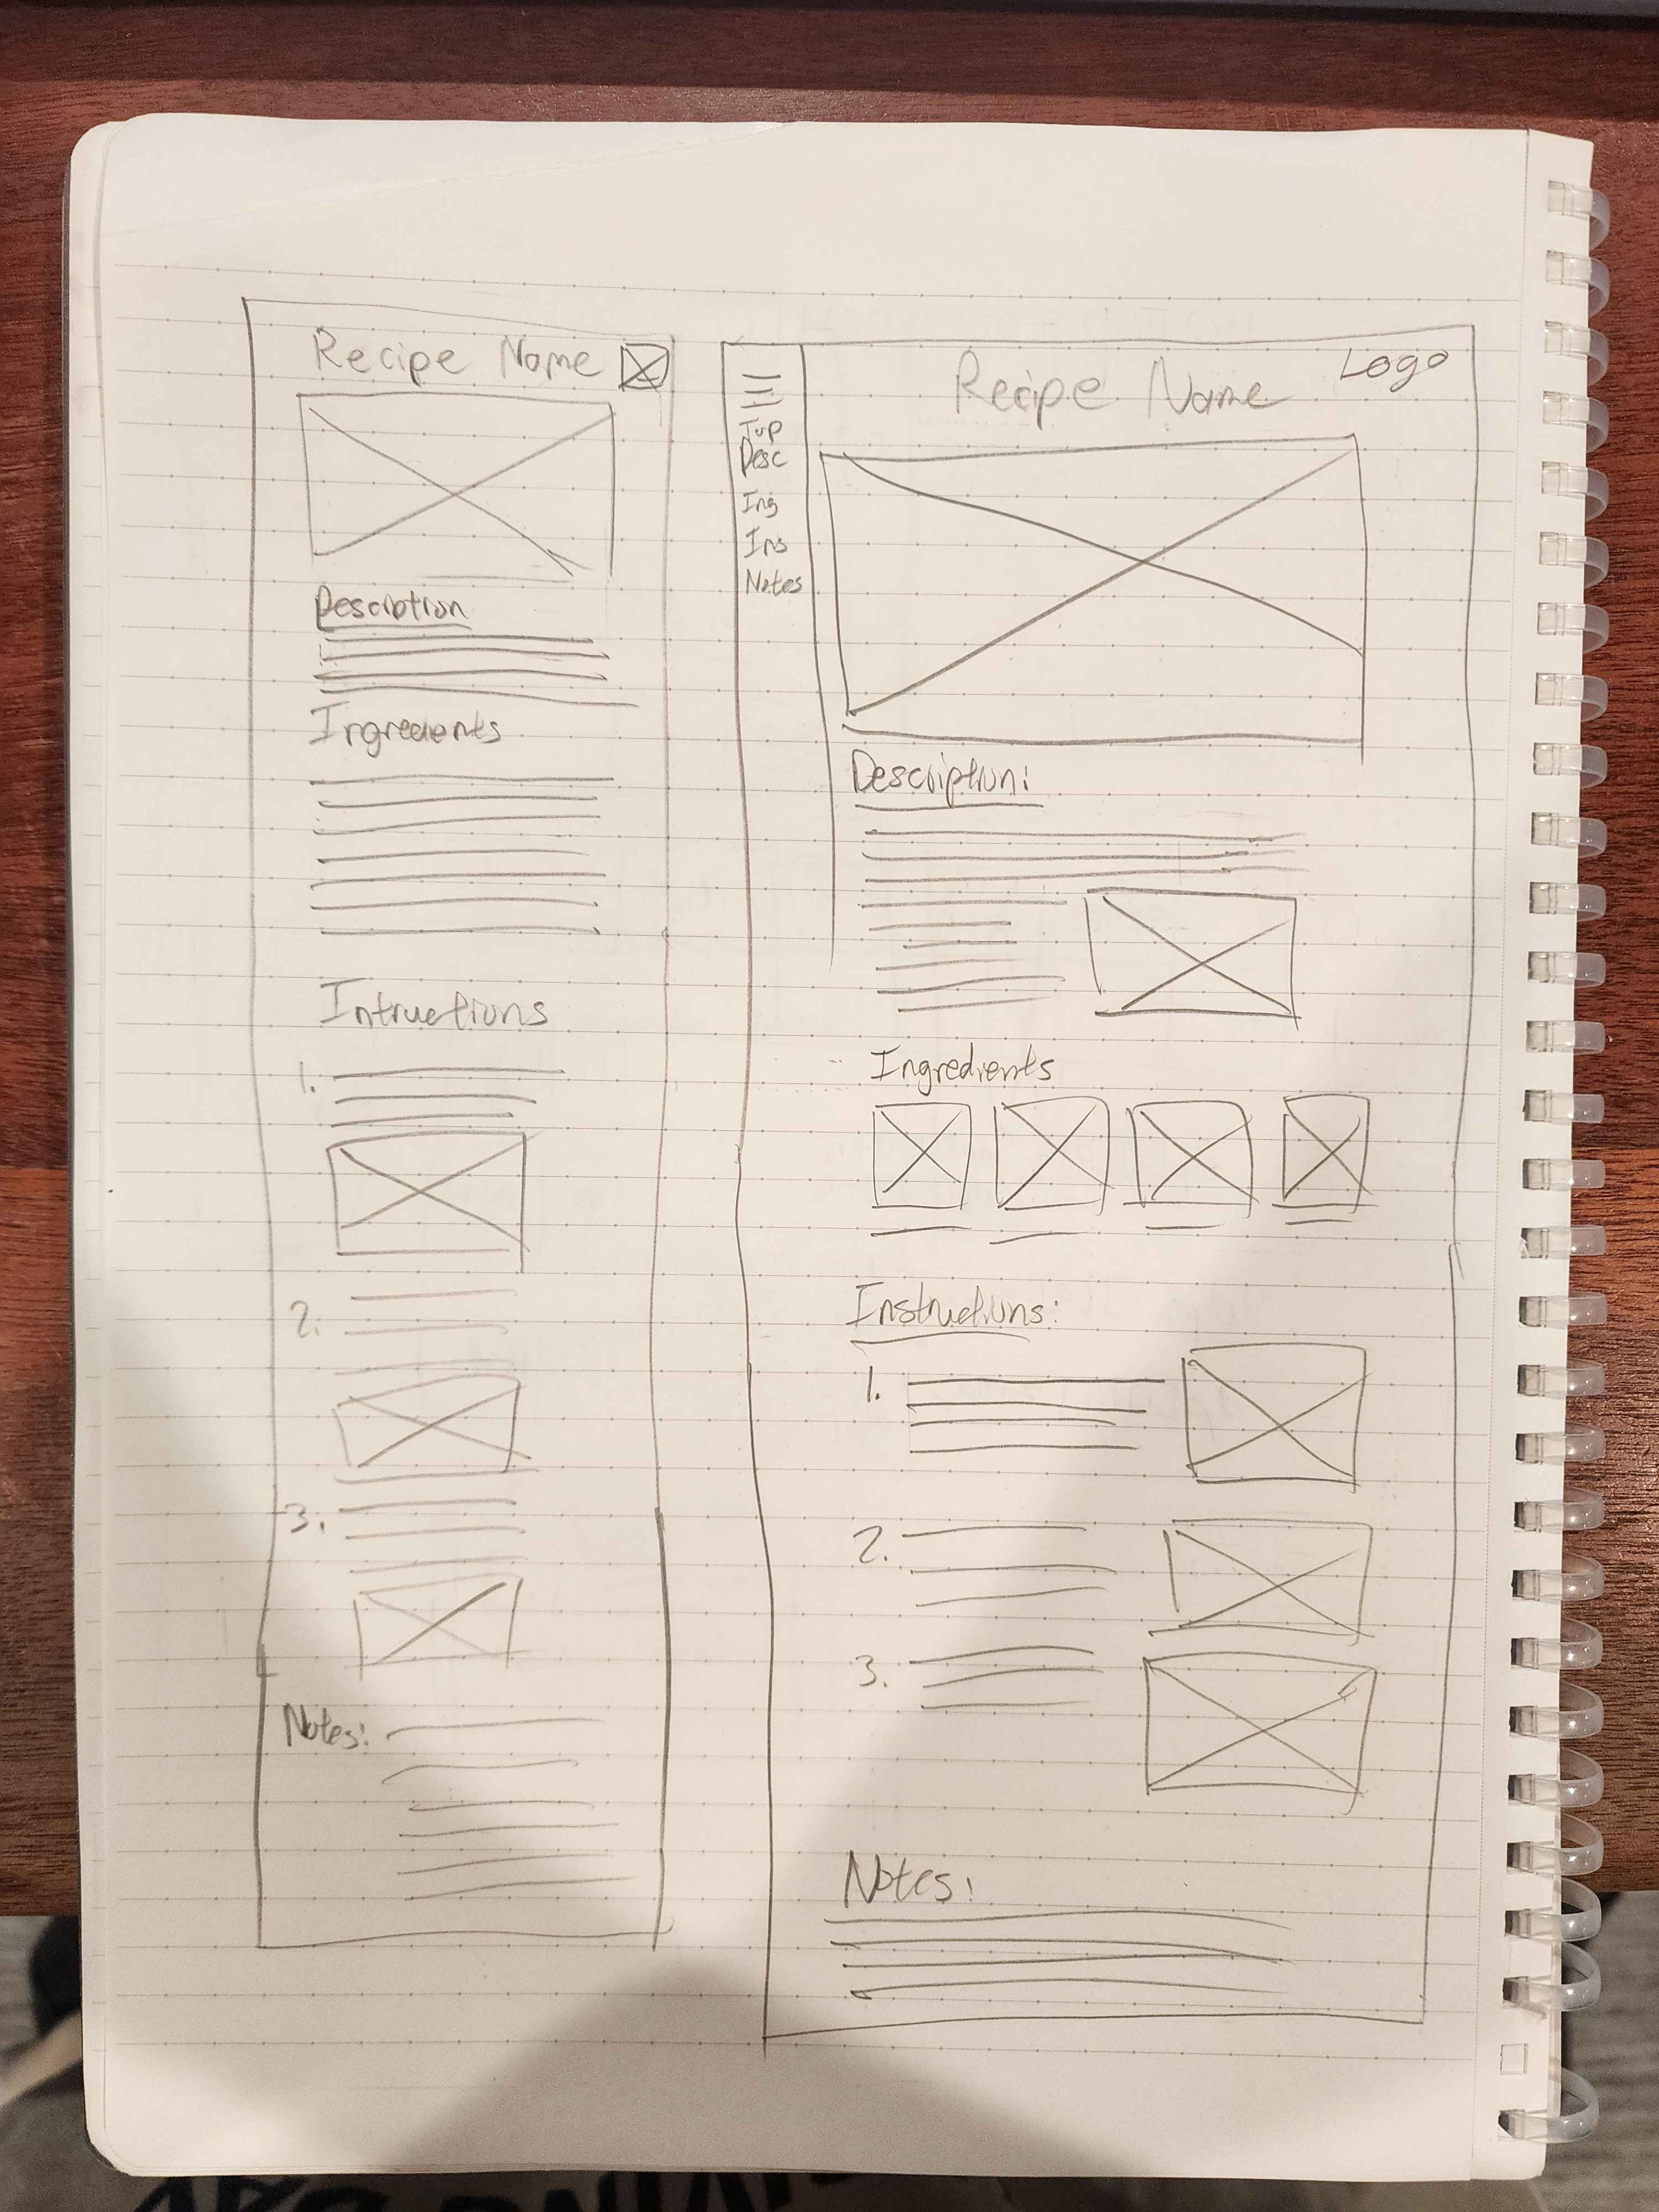 Recipe Name
Description
Ingredients
Intructions
1.
2.
3.
Notes:
Logo
Recipe Name
Top
Desc
Ing
Ins
Notes
Description:
Ingredients
Instructions:
1.
2.
3.
Notes: